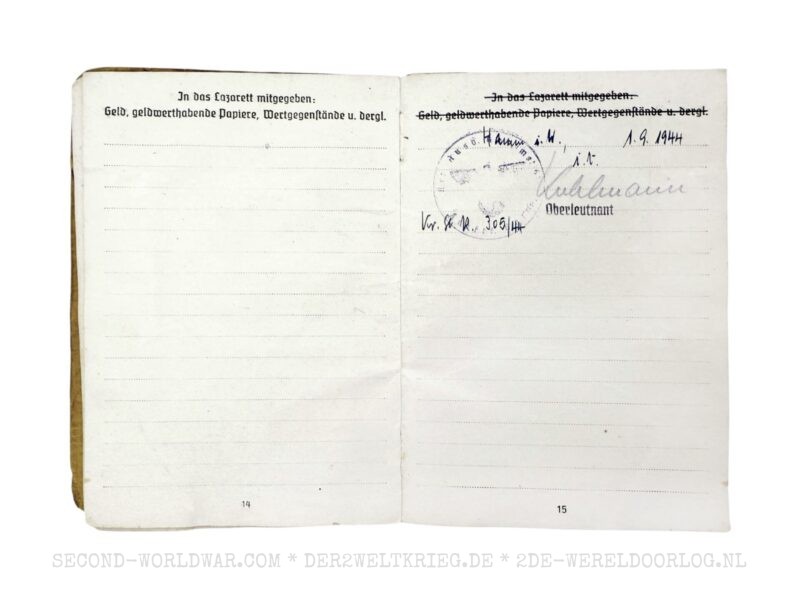 In das Lazarett mitgegeben:
Geld, geldwerthabende Papiere, Wertgegenstände u. dergl.
14
In das Lazarett mitgegeben:
Geld, geldwerthabende Papiere, Wertgegenstände u. dergl.
Hamm i. W., 1.9.1944
i.V.
Kuhlmann
Oberleutnant
305/44
15
SECOND-WORLDWAR.COM * DER2WELTKRIEG.DE * 2DE-WERELDOORLOG.NL